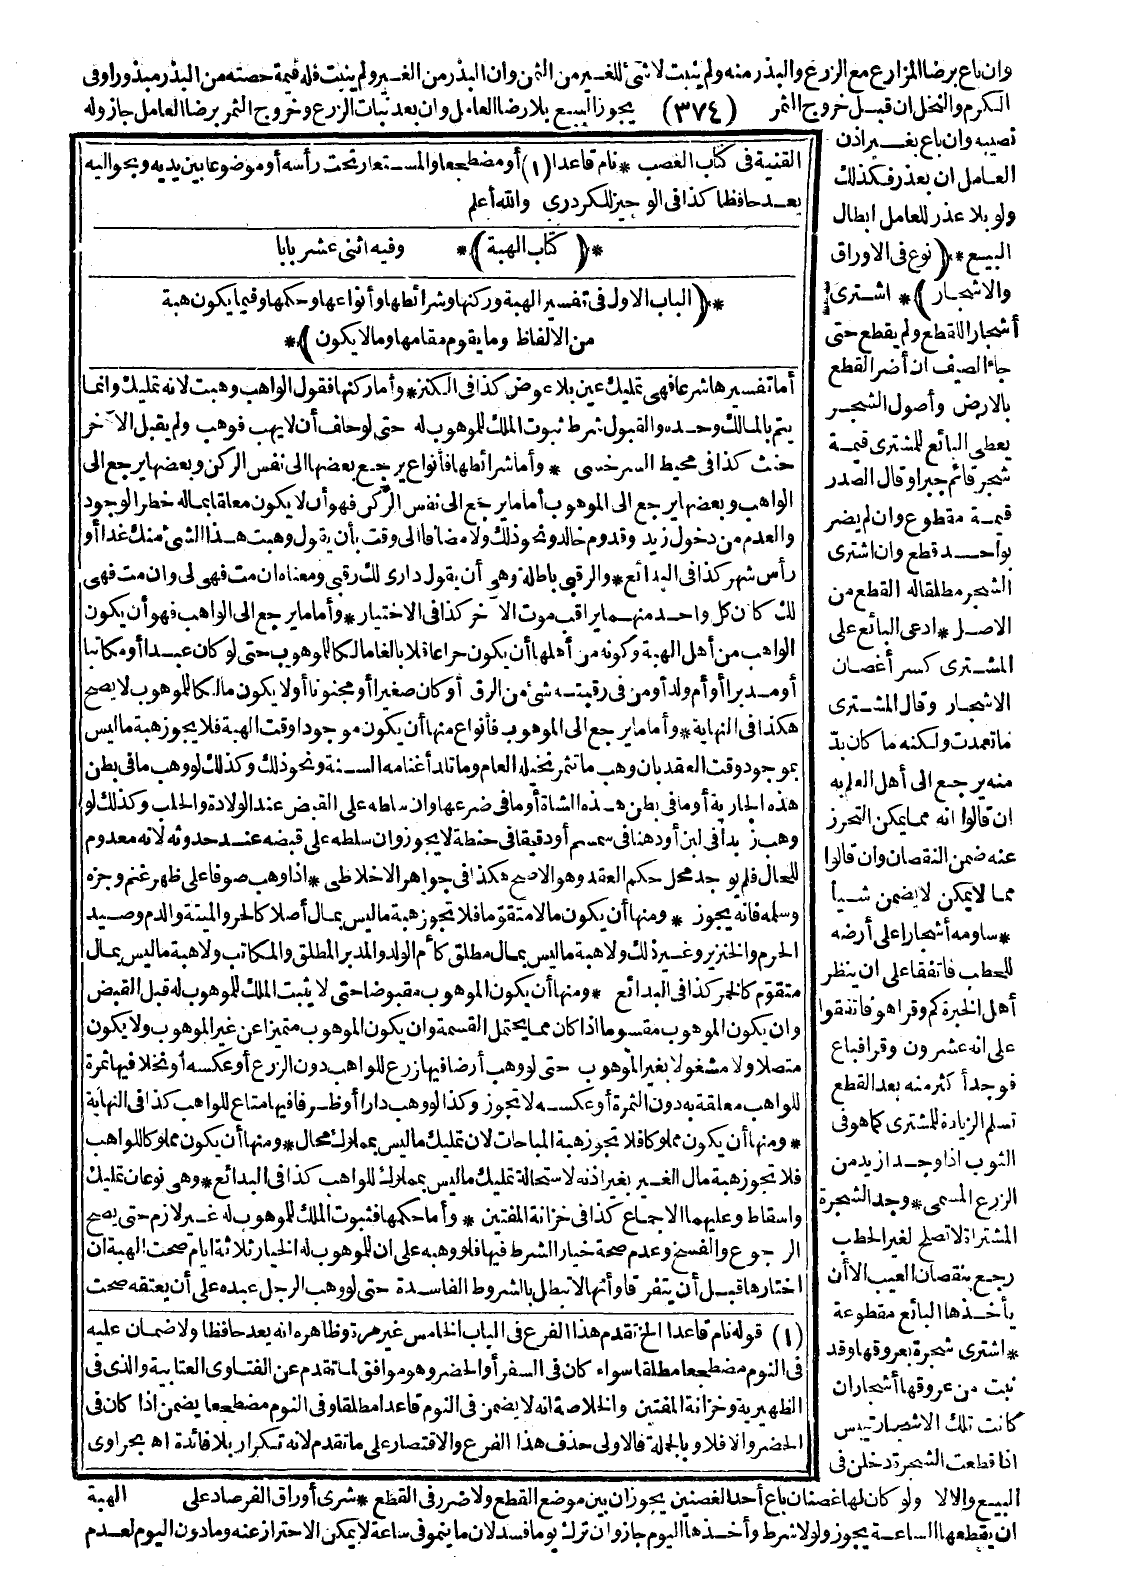 وان باع برضا المزارع مع الزرع والبذر منه ولم ينبت لا شئ للغير من الثمن وان البذر من الغير ولم ينبت فله قيمة حصته من البذر مبذورا وفى
الكرم والنخل ان قبل خروج الثمر (٣٧٤) يجوز البيع بلا رضا العامل وان بعد نبات الزرع وخروج الثمر برضا العامل جاز وله
نصيبه وان باع بغير اذن
العامل ان بعذر فكذلك
ولو بلا عذر للعامل ابطال
البيع * (نوع فى الاوراق
والاشجار) * اشترى
أشجارا للقطع ولم يقطع حتى
جاء الصيف ان أضر القطع
بالارض وأصول الشجر
يعطى البائع للمشترى قيمة
شجر قائم جبرا وقال الصدر
قيمة مقطوع وان لم يضر
بواحد قطع وان اشترى
الشجر مطلقا له القطع من
الاصل * ادعى البائع على
المشترى كسر أغصان
الاشجار وقال المشترى
ما تعمدت ولكنه ما كان بدّ
منه يرجع الى أهل العلم به
ان قالوا انه مما يمكن التحرز
عنه ضمن النقصان وان قالوا
مما لا يمكن لا يضمن شيأ
* ساومه أشجارا على أرضه
للحطب فاتفقا على ان ينظر
أهل الخبرة كم وقرا هو فاتفقوا
على انه عشرون وقرا فباع
فوجد أكثر منه بعد القطع
تسلم الزيادة للمشترى كما هو فى
الثوب اذا وجد ازيد من
الزرع المسمى * وجد الشجرة
المشتراة لا تصلح لغير الحطب
رجع بنقصان العيب الا أن
يأخذها البائع مقطوعة
* اشترى شجرة بعروقها وقد
نبت من عروقها أشجار ان
كانت تلك الاشجار تيبس
اذا قطعت الشجرة دخلن فى
القنية فى كتاب الغصب * نام قاعدا (١) أو مضطجعا والمستعار تحت رأسه أو موضوعا بين يديه وبحواليه
يعد حافظا كذا فى الوجيز للكردرى والله أعلم
* (كتاب الهبة) * وفيه اثنى عشر بابا
* (الباب الاول فى تفسير الهبة وركنها وشرائطها وأنواعها وحكمها وفيما يكون هبة
من الالفاظ وما يقوم مقامها وما لا يكون) *
أما تفسيرها شرعا فهى تمليك عين بلا عوض كذا فى الكنز * وأما ركنها فقول الواهب وهبت لانه تمليك وانما
يتم بالمالك وحده والقبول شرط ثبوت الملك للموهوب له حتى لو حلف أن لا يهب فوهب ولم يقبل الآخر
حنث كذا فى محيط السرخسى * وأما شرائطها فأنواع يرجع بعضها الى نفس الركن وبعضها يرجع الى
الواهب وبعضها يرجع الى الموهوب أما ما يرجع الى نفس الركن فهو أن لا يكون معلقا بما له خطر الوجود
والعدم من دخول زيد وقدوم خالد ونحو ذلك ولا مضافا الى وقت بأن يقول وهبت هذا الشئ منك غدا أو
رأس شهر كذا فى البدائع * والرقبى باطلة وهى أن يقول دارى لك رقبى ومعناه ان مت فهى لى وان مت فهى
لك كان كل واحد منهما يراقب موت الآخر كذا فى الاختيار * وأما ما يرجع الى الواهب فهو أن يكون
الواهب من أهل الهبة وكونه من أهلها أن يكون حرا عاقلا بالغا مالكا للموهوب حتى لو كان عبدا أو مكاتبا
أو مدبرا أو أم ولد أو من فى رقبته شئ من الرق أو كان صغيرا أو مجنونا أو لا يكون مالكا للموهوب لا يصح
هكذا فى النهاية * وأما ما يرجع الى الموهوب فأنواع منها أن يكون موجودا وقت الهبة فلا يجوز هبة ما ليس
بموجود وقت العقد بان وهب ما تثمر نخيله العام وما تلد أغنامه السنة ونحو ذلك وكذلك لو وهب ما فى بطن
هذه الجارية أو ما فى بطن هذه الشاة أو ما فى ضرعها وان سلطه على القبض عند الولادة والحلب وكذلك لو
وهب زبدا فى لبن أو دهنا فى سمسم أو دقيقا فى حنطة لا يجوز وان سلطه على قبضه عند حدوثه لانه معدوم
للحال فلم يوجد محل حكم العقد وهو الاصح هكذا فى جواهر الاخلاطى * اذا وهب صوفا على ظهر غنم وجزه
وسلمه فانه يجوز * ومنها أن يكون مالا متقوّما فلا تجوز هبة ما ليس بمال أصلا كالحر والميتة والدم وصيد
الحرم والخنزير وغير ذلك ولا هبة ما ليس بمال مطلق كأم الولد والمدبر المطلق والمكاتب ولا هبة ما ليس بمال
متقوّم كالخمر كذا فى البدائع * ومنها أن يكون الموهوب مقبوضا حتى لا يثبت الملك للموهوب له قبل القبض
وان يكون الموهوب مقسوما اذا كان مما يحتمل القسمة وان يكون الموهوب متميزا عن غير الموهوب ولا يكون
متصلا ولا مشغولا بغير الموهوب حتى لو وهب أرضا فيها زرع للواهب دون الزرع أو عكسه أو نخلا فيها ثمرة
للواهب معلقة به دون الثمرة أو عكسه لا تجوز وكذا لو وهب دارا أو ظرفا فيها متاع للواهب كذا فى النهاية
* ومنها أن يكون مملوكا فلا تجوز هبة المباحات لان تمليك ما ليس بمملوك محال * ومنها أن يكون مملوكا للواهب
فلا تجوز هبة مال الغير بغير اذنه لاستحالة تمليك ما ليس بمملوك للواهب كذا فى البدائع * وهى نوعان تمليك
واسقاط وعليهما الاجماع كذا فى خزانة المفتين * وأما حكمها فثبوت الملك للموهوب له غير لازم حتى يصح
الرجوع والفسخ وعدم صحة خيار الشرط فيها فلو وهبه على ان للموهوب له الخيار ثلاثة ايام صحت الهبة ان
اختارها قبل أن يتفرقا وأنها لا تبطل بالشروط الفاسدة حتى لو وهب الرجل عبده على أن يعتقه صحت
(١) قوله نام قاعدا الخ تقدم هذا الفرع فى الباب الخامس غير مرة وظاهره انه يعد حافظا ولا ضمان عليه
فى النوم مضطجعا مطلقا سواء كان فى السفر أو الحضر وهو موافق لما تقدم عن الفتاوى العتابية والذى فى
الظهيرية وخزانة المفتين والخلاصة انه لا يضمن فى النوم قاعدا مطلقا وفى النوم مضطجعا يضمن اذا كان فى
الحضر والا فلا وبالجملة فالاولى حذف هذا الفرع والاقتصار على ما تقدم لانه تكرار بلا فائدة اه بحراوى
البيع والا لا ولو كان لها غصنان باع أحد الغصنين يجوز ان بين موضع القطع ولا ضرر فى القطع * شرى أوراق الفرصاد على الهبة
ان يقطعها الساعة يجوز ولو لا شرط وأخذها اليوم جاز وان ترك يوما فسد لان ما ينمو فى ساعة لا يمكن الاحتراز عنه وما دون اليوم لعدم